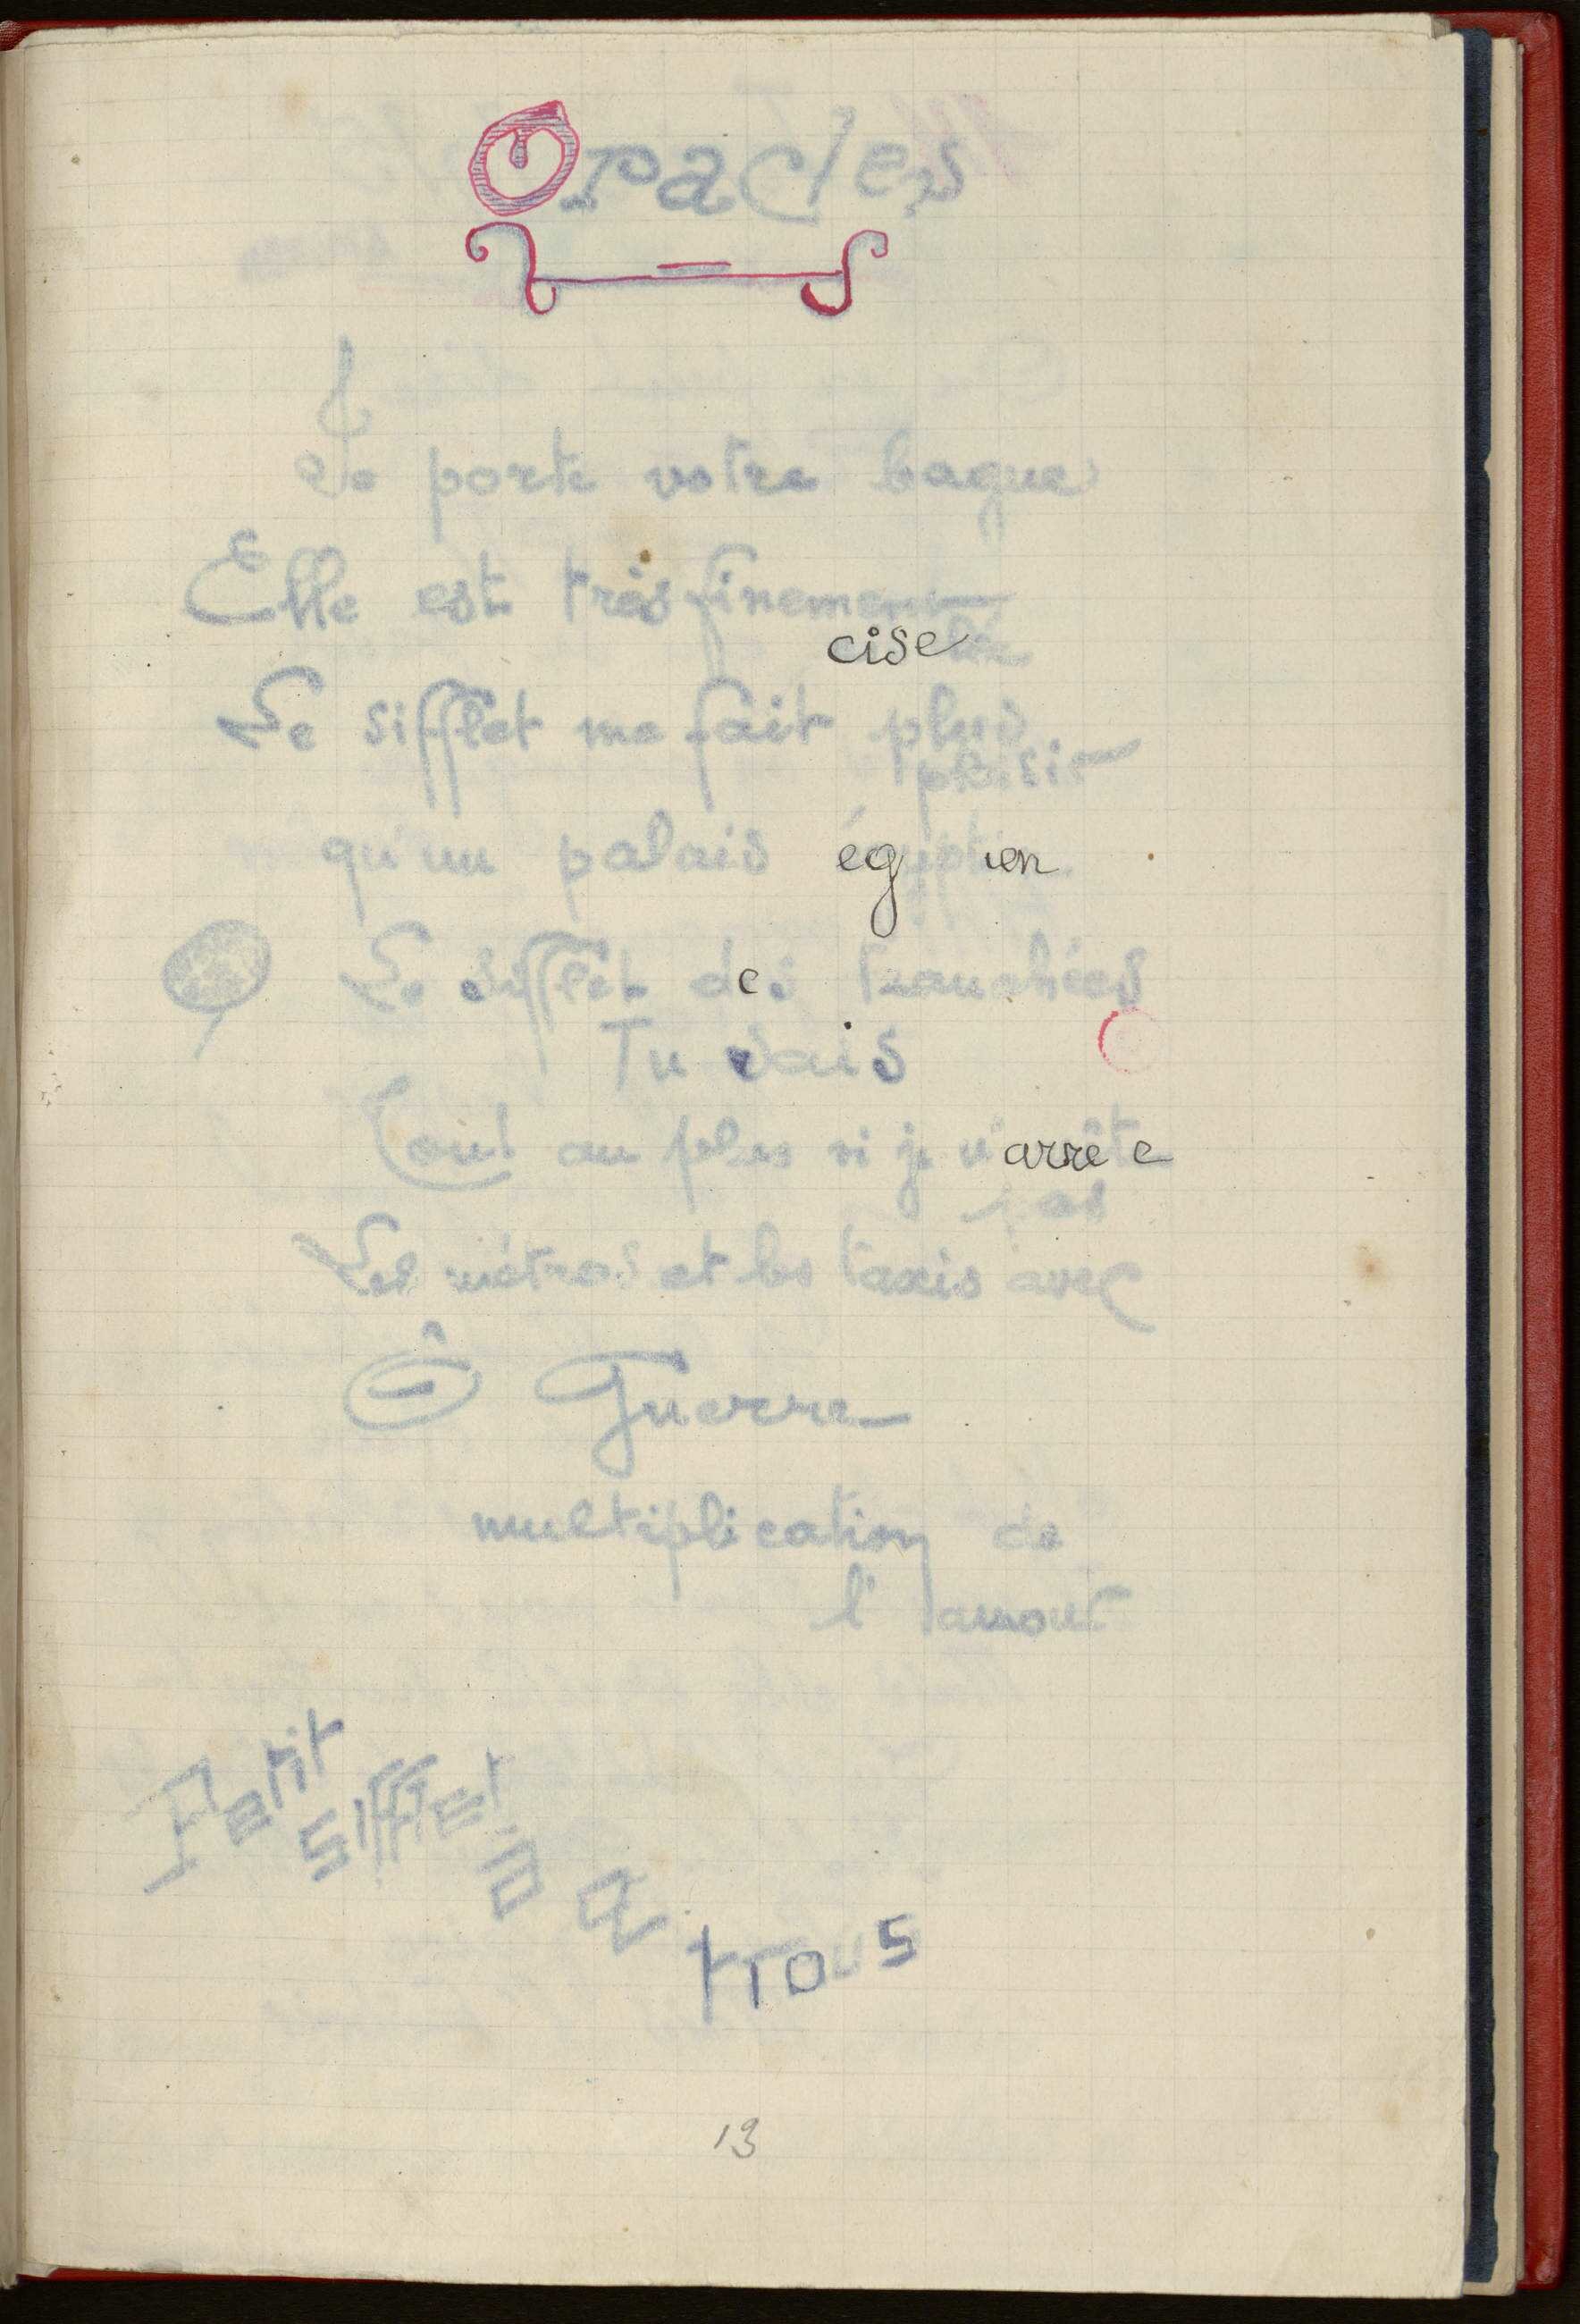 Oracles
Je porte votre bague
Elle est très finement
ciselée
Le sifflet me fait plus
plaisir
qu'un palais égyptien
Le sifflet des tranchées
Tu sais
Tout au plus si je n'arrête
pas
Les métros et les taxis avec
Ô Guerre
multiplication de
l'amour
Petit
sifflet
à 2
trous
13